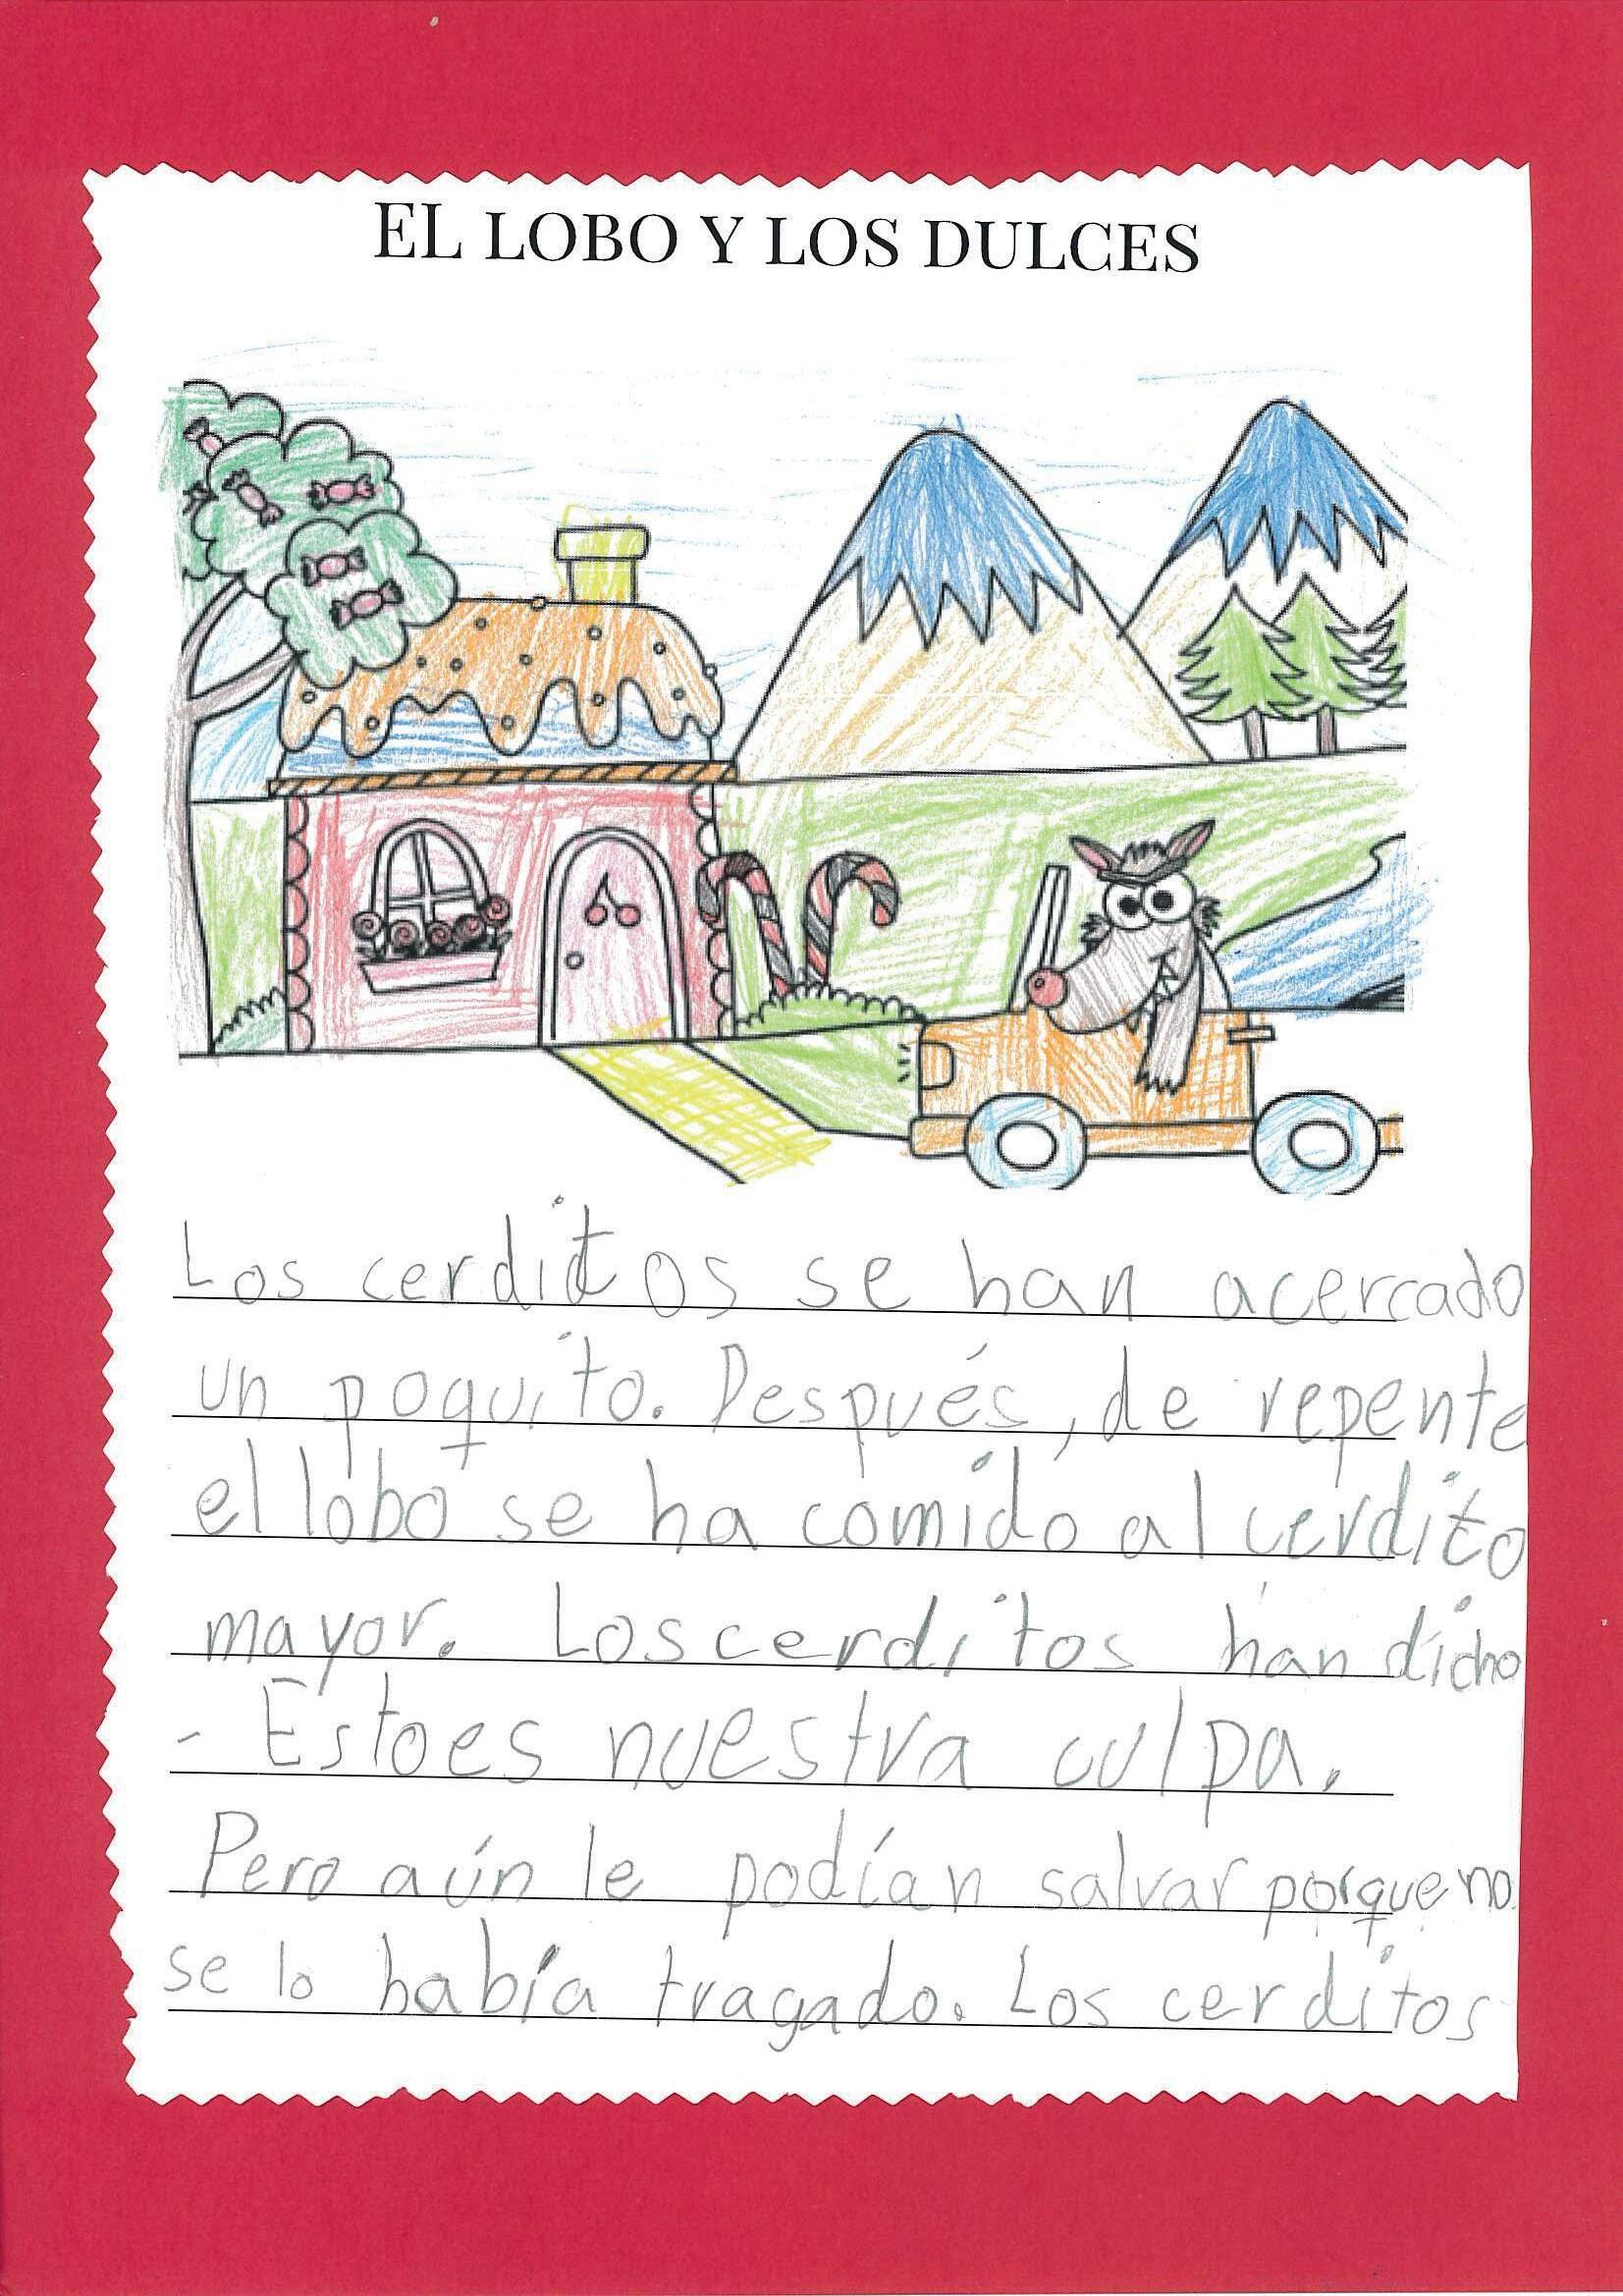 EL LOBO Y LOS DULCES
Los cerditos se han acercado
un poquito. Después, de repente
el lobo se ha comido al cerdito
mayor. Los cerditos han dicho
- Esto es nuestra culpa.
Pero aún le podían salvar porque no
se lo había tragado. Los cerditos